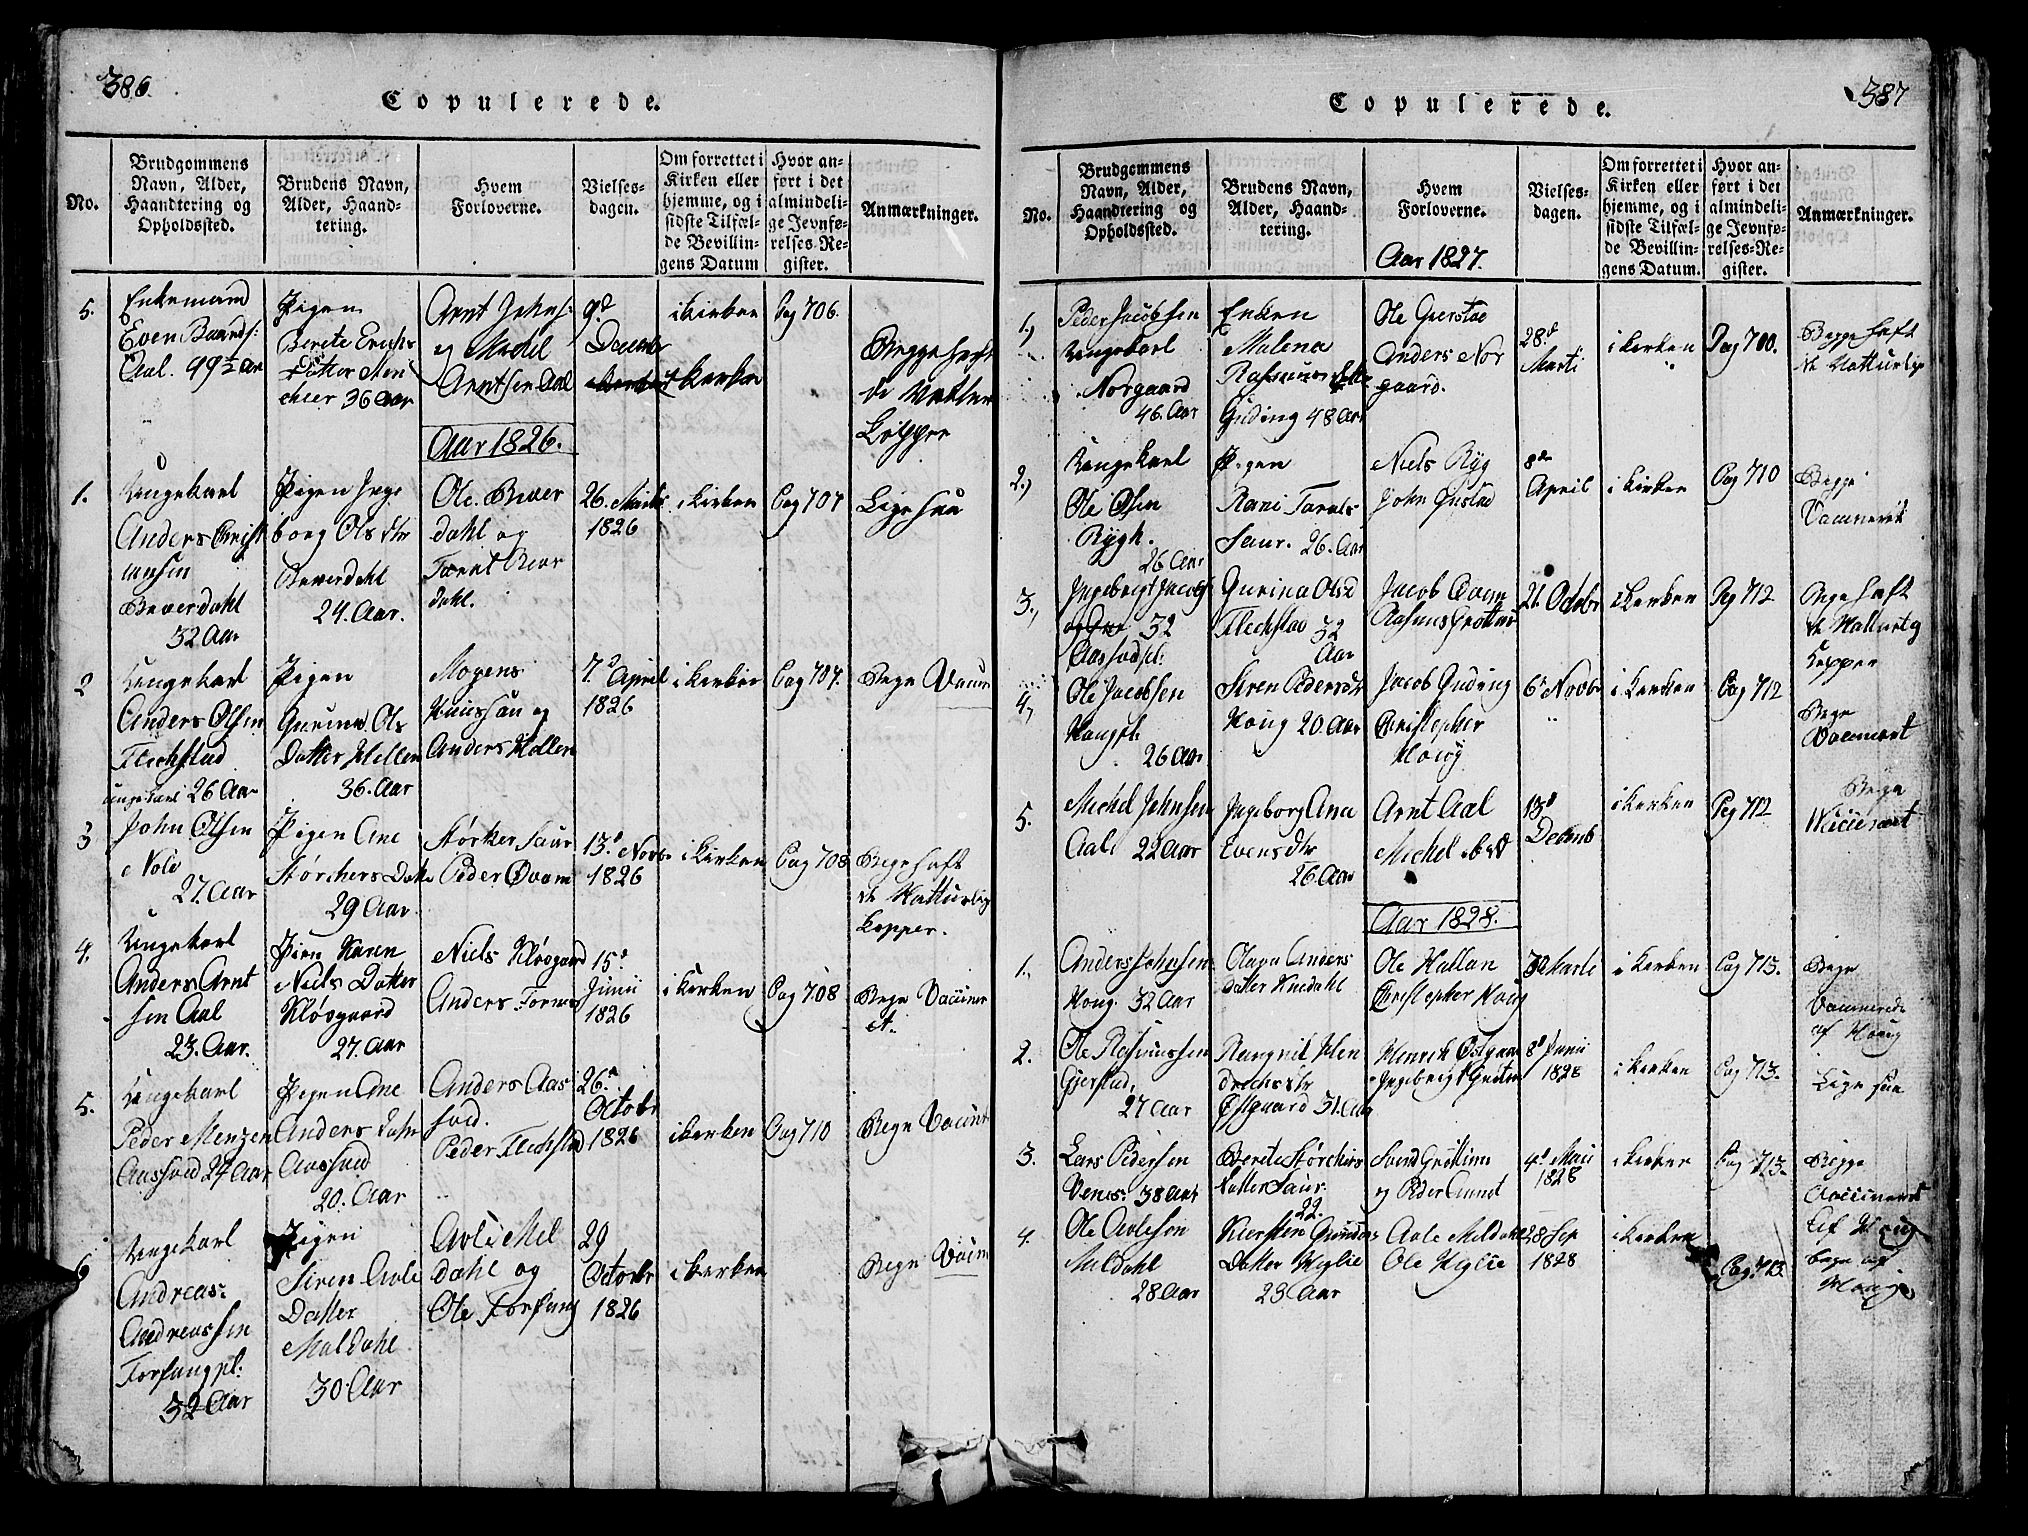 386.
Copulerede.
No.
Brudgommens Navn, Alder, Haandtering og Opholdssted.
Brudens Navn, Alder, Haandtering.
Hvem Forloverne.
Vielsesdagen.
Om forrettet i Kirken eller hjemme, og i sidste Tilfælde Bevillingens Datum
Hvor anført i det almindelige Jevnførelses-Register.
Anmærkninger.
5.
Enkemand
Even Baards:
Aal.
Pigen
Berete Erichs
Datter
36 Aar
Arnt Johns:
og Michel
Arntsen Aal
9d
Decembr
i Kirken
i Kirken
Pag 706.
Begge hafte
de
Kopper
Aar 1826.
1.
Ungekarl
Anders Christ
iansen
Beverdahl
32 Aar
Pigen Inge
borg Ols dtr
Beverdahl
24. Aar.
Ole Bever
dahl og
Tarnt Bever
dahl.
26. Marti
1826
i Kirken
Pag 707
Ligesaa
2
Ungekarl
Anders Olsen
Flechstad
26 Aar
Pigen
Gurina Ols
Datter Hellen
36. Aar
Mogens
og
Anders Hellen
7d April
1826
i Kirken
Pag 707.
Begge Vacin
3
ungekarl
John Olsen
27. Aar
Pigen Ane
Størchers Datter
29 Aar.
Størker Saur
Peder Qvam
13d Novbr
1826
i Kirken
Pag 708
Bege haft
de Natturlige
Kopper.
4.
Ungekarl
Anders Arnt
sen Aal
23. Aar.
Pigen Karen
Niels Datter
Kløvgaard
27. Aar
Niels Kløvgaard
Anders Fornes
15d
Junii
1826
i Kirken
Pag 708
Bege Vaciner
et.
5.
Ungekarl
Peder Monsen
Aasvod 27 Aar
Pigen Ane
Anders Datr
Aasvod
20. Aar
Anders Aas
vod.
Peder Flechstad
26d
Octobr
1826
i Kirken
Pag 710
Bege Vacint
6
Ungekarl
Andreas
Andreassen
Forfang pl:
32 Aar
Pigen
Siren Avle
Datter
Meldahl
30. Aar
Avle Mel
dahl og
Ole Forfang
29
Octobr
1826
i Kirken
Bege Vacin
387
Copulerede.
No.
Brudgommens Navn, Alder, Haandtering og Opholdssted.
Brudens Navn, Alder, Haandtering.
Hvem Forloverne.
Vielsesdagen.
Om forrettet i Kirken eller hjemme, og i sidste Tilfælde Bevillingens Datum.
Hvor anført i det almindelige Jevnførelses-Register.
Anmærkninger.
Aar 1827.
1.)
Peder Jacobsen
Ungekarl
Norgaard
46. Aar
Enken
Malena
Rasmus
Guding 48 Aar
Ole Gierstae
Anders Nor
gaard.
28d
Marti
i Kirken
Pag 700.
Begge haft
de Natturlige
2.)
Ungekarl
Ole Olsen
Rygh.
26 Aar
Pigen
Rani Tarals
Saur. 26. Aar
Niels Ryg
John Gustad
8de
April
i Kirken
Pag 710
Begge
Vacineret
3.,
Ingebregt Jacobs
32
Aasvod pl:
Gurina Olsd
Flechstad 32
Aar
Jacob Qvam
Rasmus Grøttim
21. Octobr
i Kirken
Pag 712
Bege haft
de Natturlig
Kopper
4.,
Ole Jacobsen
Hougpl.
26 Aar
Siren Pedersdtr
Houg 20. Aar
Jacob Guding
Christopher
Houg
6d Novbr
i Kirken
Pag 712
Bege
Vacinert
5.
Michel Johnsen
Aal. 22 Aar
Ingeborg Ana
Evens dtr
26. Aar
Arnt Aal
Michel
13d
Decemb
i Kirken
Pag 712
Bege
Vacinert
Aar 1828.
1.,
Anders Johnsen
Houg. 32 Aar
Anders
datter
Ole Hallan
Christopher Houg
Marti
i Kirken
Pag 713.
Bege
Vacinerede
af Houg
2.
Ole Rasmussen
Gierstad,
27 Aar
Rangnil Hen
drichs dtr
Østgaard 31. Aar
Henrik Østgaar
Ingebrigt Grøtim
8d Junii
1828
i Kirken
Pag 713.
Lige saa
3.
Lars Pedersen
38 Aar
Berete Størchers
datter Saur.
22.
Svend Grøttim
og Peder
4d Maii
1828
i Kirken
Pag 713.
Begge
Vacineret
af Houg
4.
Ole Avlesen
Meldahl
28 Aar
Kiersten
Datter Heglie
23 Aar
Avle Meldahl
Ole Heglie
28 Sep
1828
i Kirken
Pag. 713.
bege af
Houg